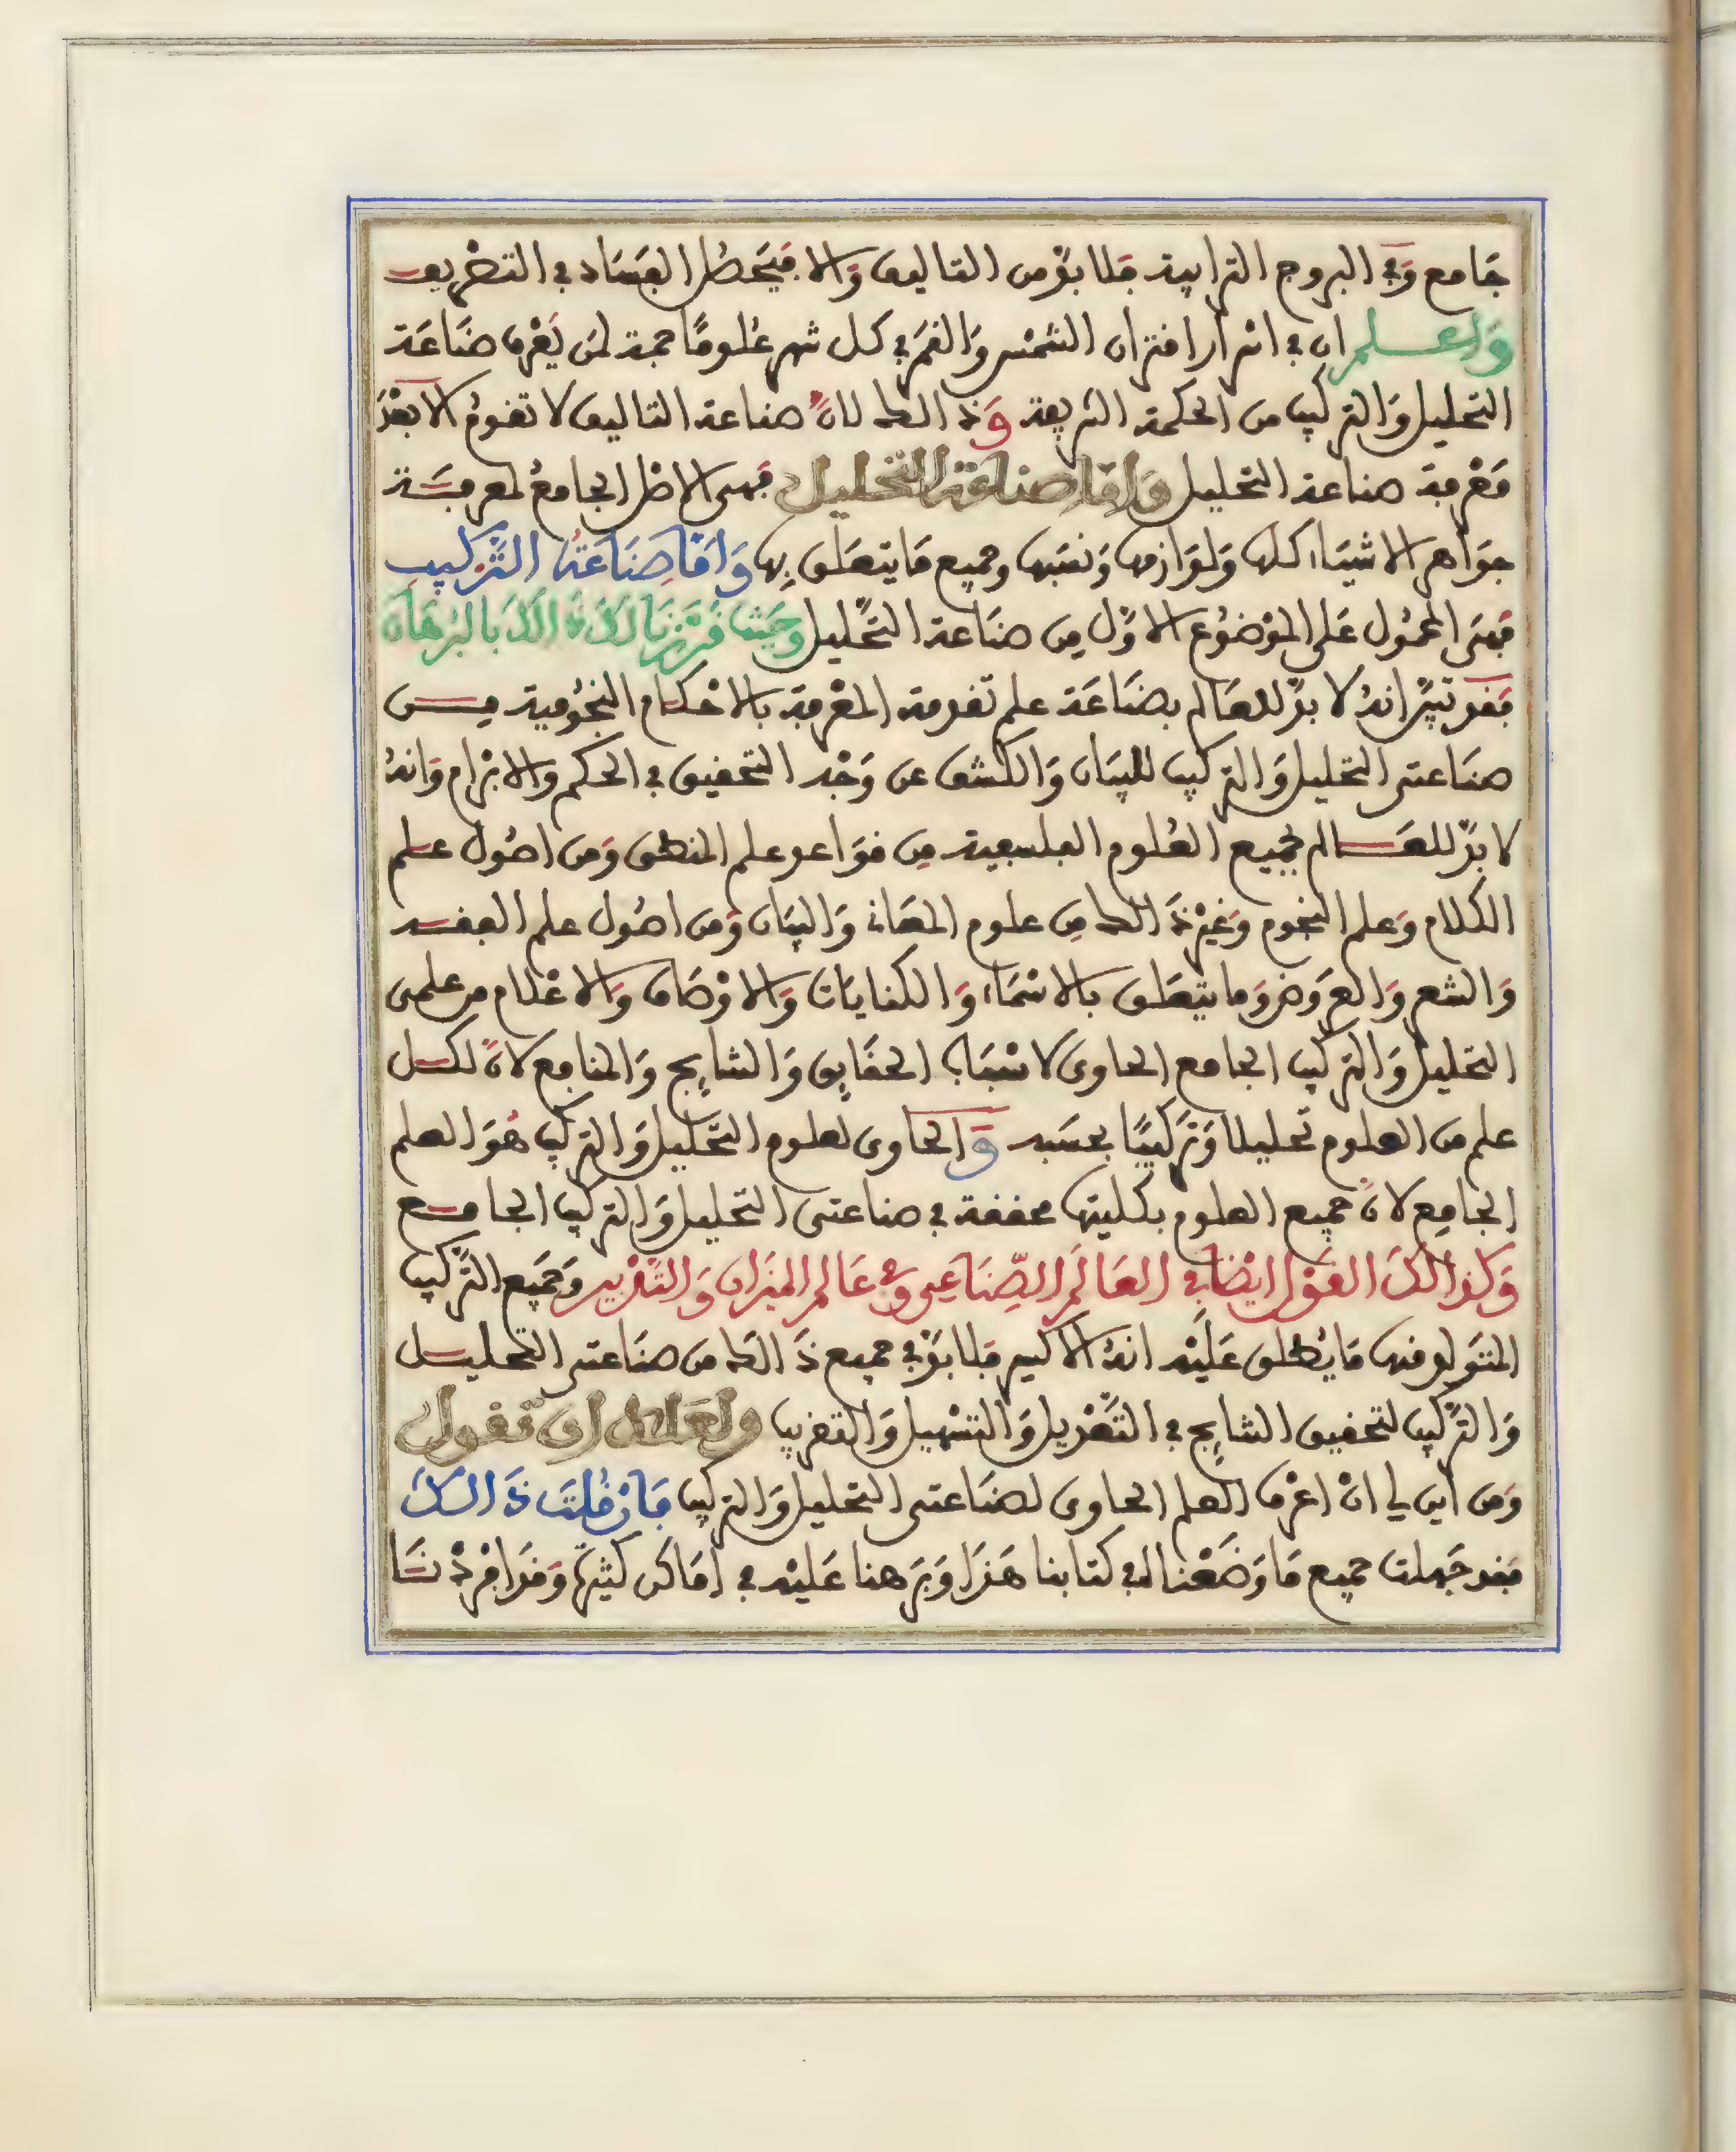 جَامع وَفي البروج الترابية فلا بدّ من التاليف وَالا فيَحصُل الفسَاد في التصْريف
وَاعلم ان في اسْرار اقتران الشمْس وَالقمَر في كل شهر عُلومًا جمة لمَن يَعْرف صَنَاعَة
التحليل وَالتركيب من الحكمة الشريفة وَذالك لانّ صناعة التاليف لا تقومُ الا بَعْدَ
مَعْرفة صناعة التحليل وَامّا صناعة التحليل فهي الاصْل الجامعُ لمعرفَة
جوَاهر الاشيَا كلها وَلوَازمها وَنسَبها وجميع مَا يتعَلق بِها وَامّا صِنَاعَةُ التّرْكيب
فهيَ المحمُول عَلى الموْضوُع الاوَّل مِن صنَاعة التّحْليل وحَيْث قرّرْنا لكَ ذَالكَ بالبُرهَان
فقد تبيّن انهُ لا بدّ للعَالم بصَنَاعَة علم تقدمة المعْرفة بالاحْكام النجُومية مِن
صنَاعتى التحليل وَالتركيب للبيَان وَالكشف عن وَجْه التحقيق في الحكم والابْرَام وَانهُ
لا بدّ للعَالم بجميع العُلوم الفلسفية مِن قوَاعد علم المنطق وَمن اصُول علم
الكلام وَعلم النجوم وَغيْر ذَالك مِن علوم المعَاني وَالبيَان وَمن اصُول علم الفقه
وَالشعر وَالعرَوض وَما يتعَلق بالاسْمَاء وَالكنايَات وَالاوْصَاف وَالاعْلام من علمى
التحليل وَالتركيب الجامع الحاوى لاسْبَاب الحقَايق وَالنتَايج وَالمنافع لانّ لكل
علم من العلوم تحليلا وَترَكيبًا بحسَبه وَالحَاوى لعلوم التّحْليل وَالتركيب هُوَ العلم
الجامع لانّ جميع العلوم بكليتها محققة في صناعتى التحليل وَالتركيب الجامع
وَكذالكَ القوْل ايْضا في العَالَم الصِّنَاعِي وَفي عَالم الميزَان وَالتَّدْبير وَجميَع التّركيب
المتوَلد منها مَا يُطلق عَليْه انهُ الاكسير فلا بدّ في جميع ذَالك من صنَاعتى التحليل
وَالتّركيب لتحقيق النتَايج في التّعْديل وَالتسْهيل وَالتقريب ولعَلك ان تقول
وَمن اين لي انْ اعْرف العلم الحاوى لصنَاعتى التحليل وَالتركيب فَانْ قُلتَ ذَالكَ
فقد جَهلت جميع مَا وَضَعْناه في كتابنا هَذا وَبرَهنا عَليْه في امَاكن كثيرَة وَقدْ افرَدْنَا